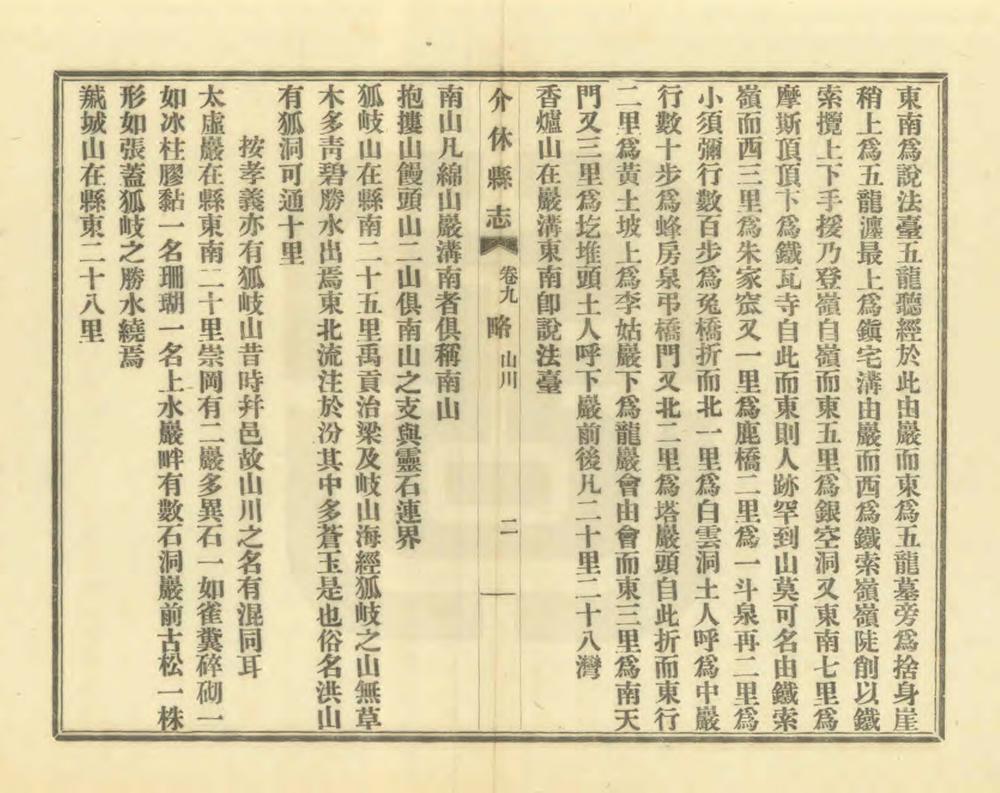 東南爲說法臺五龍聽經於此由巖而東爲五龍墓旁爲捨身崖
稍上爲五龍瀍最上爲鎭宅溝由巖而西爲鐵索嶺嶺陡削以鐵
索攬上下手援乃登嶺自嶺而東五里爲銀空洞又東南七里爲
摩斯頂頂下爲鐵瓦寺自此而東則人跡罕到山莫可名由鐵索
嶺而西三里爲朱家窊又一里爲鹿橋二里爲一斗泉再二里爲
小須彌行數百步爲兔橋折而北一里爲白雲洞土人呼爲中巖
行數十步爲蜂房泉弔橋門又北二里爲塔巖頭自此折而東行
二里爲黃土坡上爲李姑巖下爲龍巖會由會而東三里爲南天
門又三里爲圪堆頭土人呼下巖前後凡二十里二十八灣
香爐山在巖溝東南卽說法臺
介休縣志 卷九 略 山川 二
南山凡綿山巖溝南者俱稱南山
抱摟山饅頭山二山俱南山之支與靈石連界
狐岐山在縣南二十五里禹貢治梁及岐山海經狐岐之山無草
木多靑碧勝水出焉東北流注於汾其中多蒼玉是也俗名洪山
有狐洞可通十里
按孝義亦有狐岐山昔時幷邑故山川之名有混同耳
太虛巖在縣東南二十里崇岡有二巖多異石一如雀糞碎砌一
如冰柱膠黏一名珊瑚一名上水巖畔有數石洞巖前古松一株
形如張蓋狐岐之勝水繞焉
蚖城山在縣東二十八里